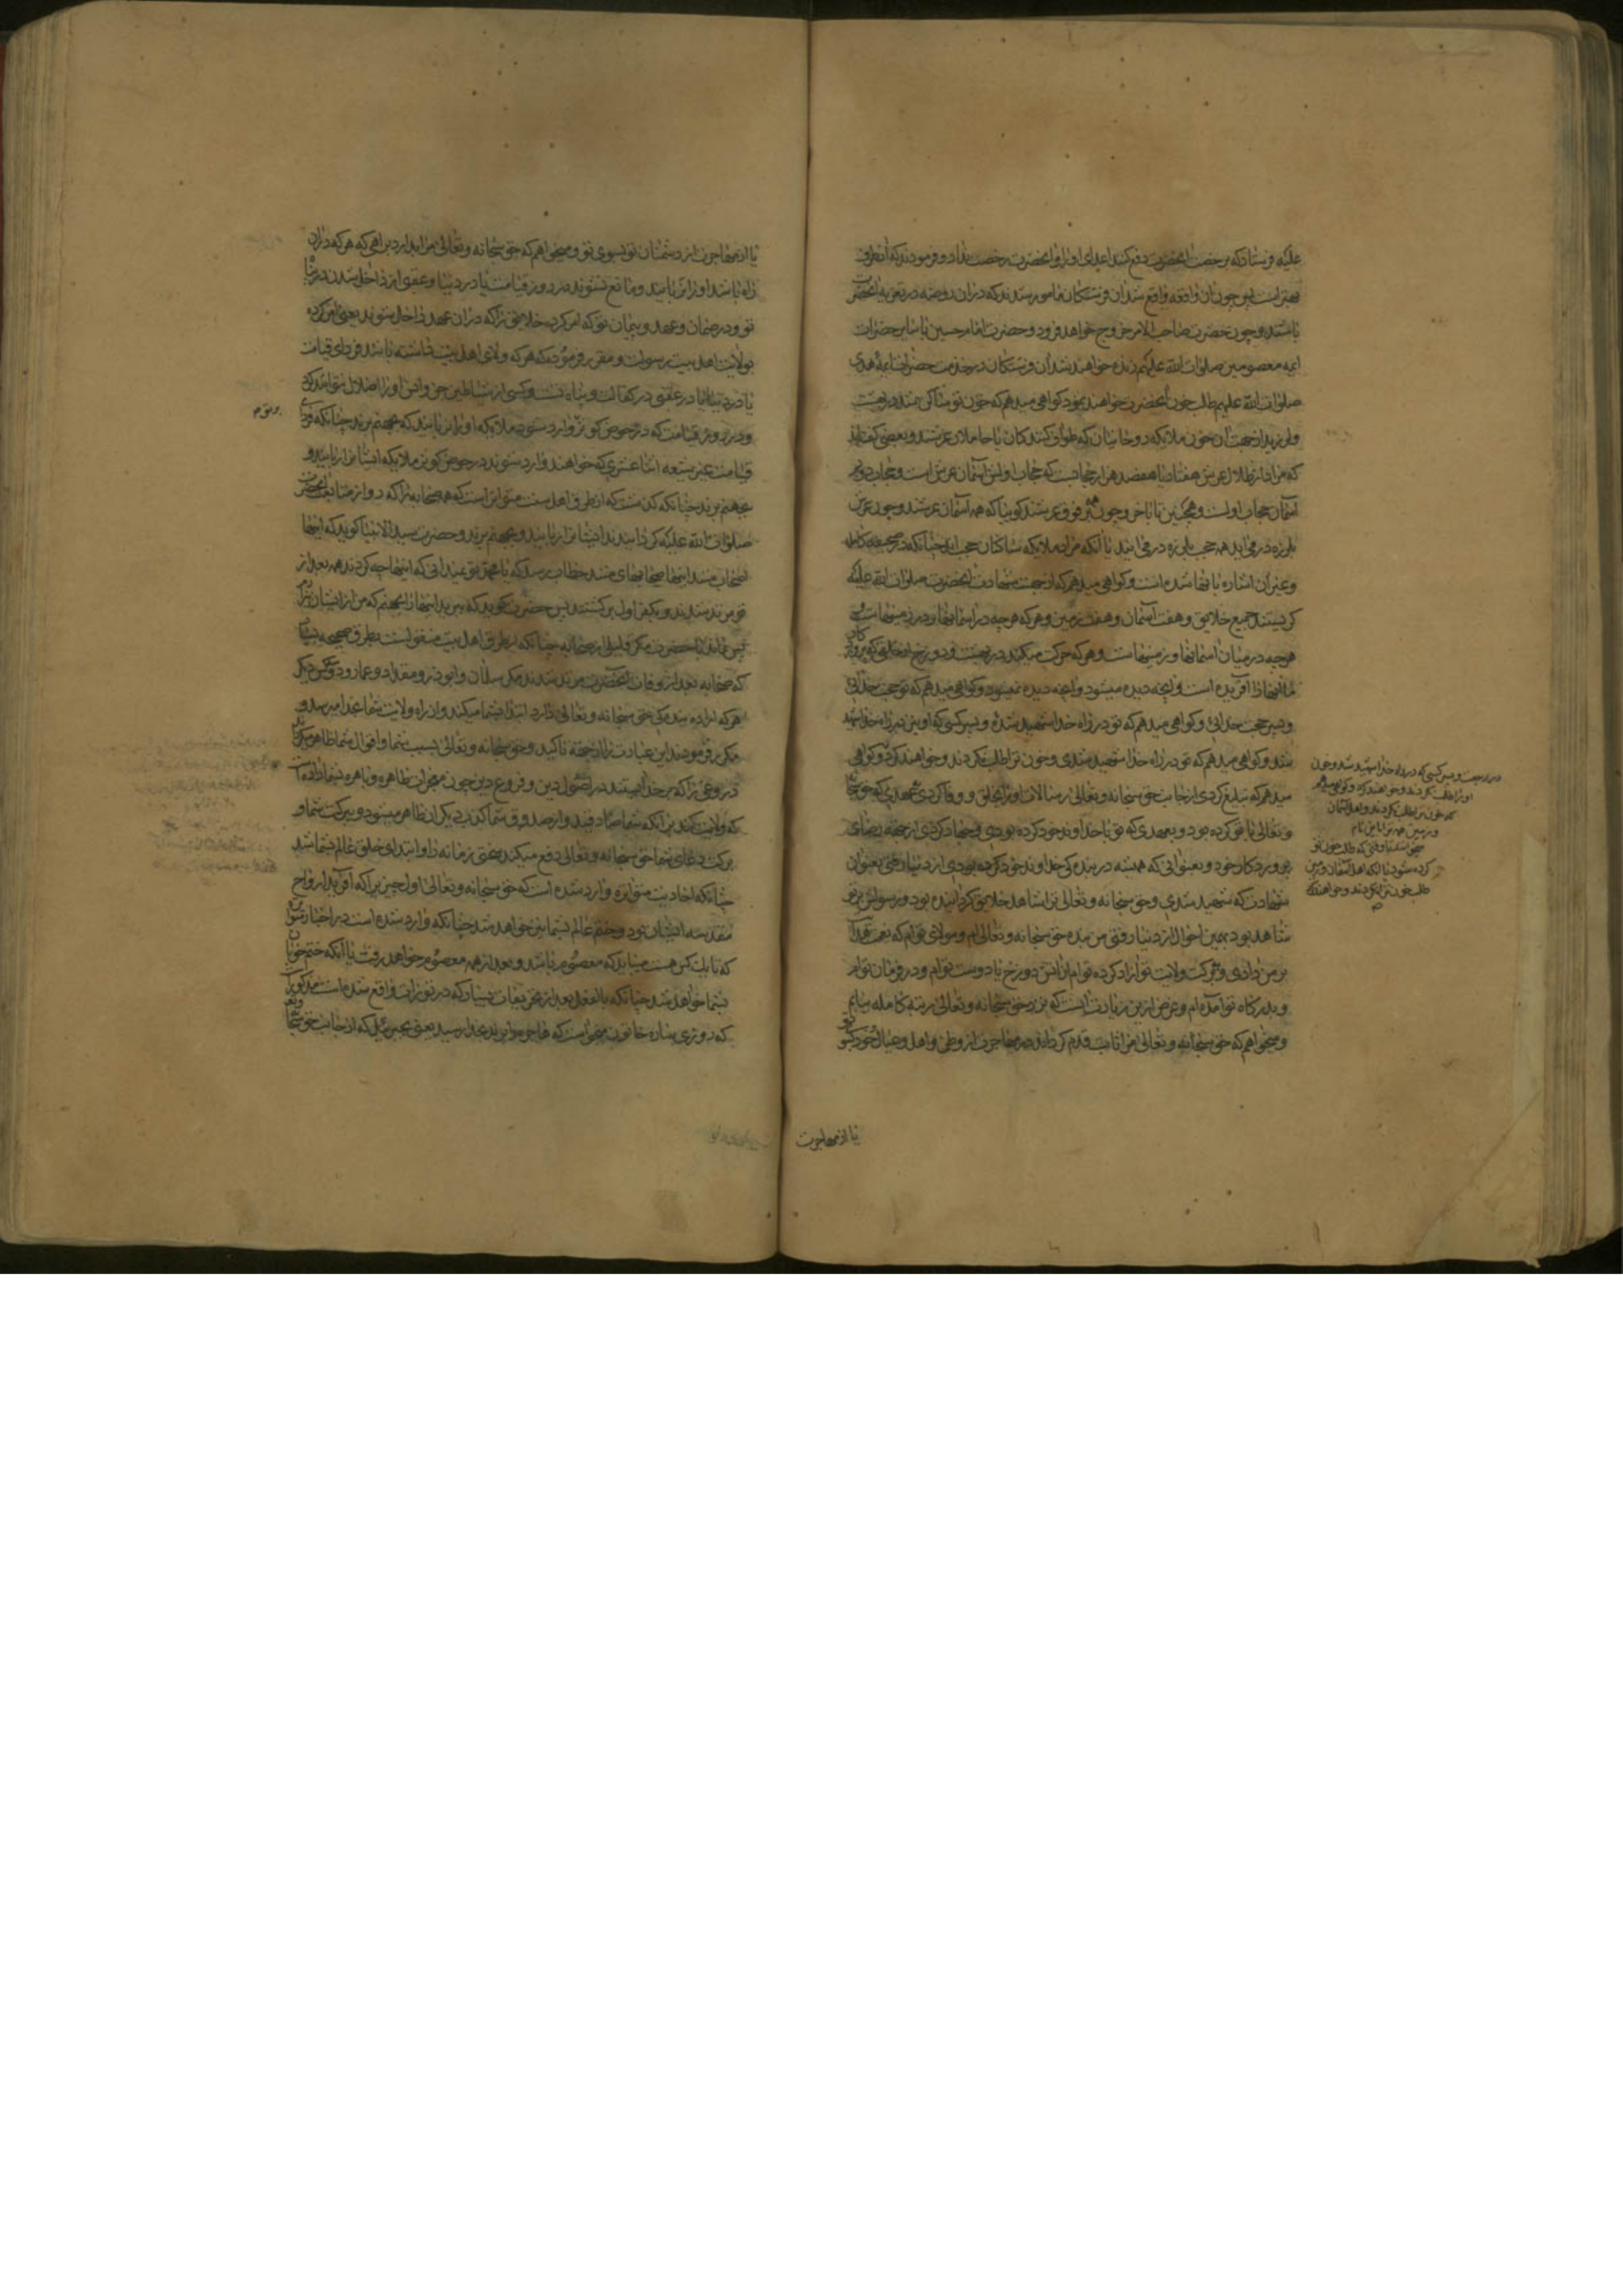 علیه فرستاد که برخصت آنحضرت دفع کنند اعدای او را و آنحضرت رخصت نداد و فرمودند که آنطرف
بهتر است پس چون آن واقعه واقع شد آن فرشتگان مامور شدند که در آن روضه در تعزیه آنحضرت
باشند و چون حضرت صاحب الامر خروج خواهد فرمود و حضرت امام حسین با سایر حضرات
ایمه معصومین صلوات الله علیهم زنده خواهند شد آن فرشتگان در خدمت حضرات ایمه هدی
صلوات الله علیهم طلب خون آنحضرت خواهند نمود گواهی میدهم که خون تو ساکن شد در بهشت
و لرزید از جهت آن خون ملایکه روحانیان که طواف کنندگان یا حاملان عرشند و بعضی گفته‌اند
که مراد از ظلال عرش هفتاد یا هفصد هزار حجابست که حجاب اولش آسمان عرش است و حجاب دویم
آسمان حجاب اولست و همچنین تا بآخر و چون همه فوق عرشند گوییا که همه آسمان عرشند و چون عرش
بلرزه در می‌آید همه حجب بلرزه در می‌آیند یا آنکه مراد ملایکه ساکنان حجب‌اند چنانکه در صحیفه کامله
و غیر آن اشاره بآنها شده است و گواهی میدهم که از جهت شهادت آنحضرت صلوات الله علیه
گریستند جمیع خلایق و هفت آسمان و هفت زمین و هر که و هر چه در آسمانها و در زمینهاست و
هر چه در میان آسمانها و زمینهاست و هر که حرکت میکند در بهشت و دوزخ از خلقی که پروردگار
ما آنها را آفریده است و آنچه دیده میشود و آنچه دیده نمیشود و گواهی میدهم که تو حجت خدائی
و پسر حجت خدائی و گواهی میدهم که تو در راه خدا شهید شدهٔ و پسر کسی که او نیز در راه خدا شهید
شد و گواهی میدهم که تو در راه خدا شهید شدی و خون ترا طلب نکردند و خواهند کرد و گواهی
میدهم که تبلیغ کردی از جانب حق سبحانه و تعالی رسالات او را بخلایق و وفا کردی بعهدی که حق سبحانه
و تعالی با تو کرده بود و بعهدی که تو با خداوند خود کرده بودی و جهاد کردی از جهة رضای
پروردگار خود و بعنوانی که همیشه در بندهکی خداوند خود کرده بودی از دنیا رفتی بعنوان
شهادت که شهید شدی و حق سبحانه و تعالی ترا شاهد خلایق گردانیده بود و رسولش بر تو
شاهد بود بهمین احوال از دنیا رفتی من بنده حق سبحانه و تعالی‌ام و مولای توام که نعمت خدا
بر من داری و ببرکت ولایت تو آزاد کرده توام از آتش دوزخ یا دوست توام و در فرمان توام
و بدرگاه تو آمده‌ام و غرض از این زیارت اینست که نزد حق سبحانه و تعالی رتبه کامله بیابم
و میخواهم که حق سبحانه و تعالی مرا ثابت قدم گرداند در مهاجرت از وطن و اهل و عیال خود بسوی تو
یا از مهاجرت
در رجعت و پسر کسی که در راه خدا شهید شد و خون
او را طلب نکردند و خواهند کرد و گواهی میدهم
که خون ترا طلب نکردند و اهل آسمان
کرده شود یا آنکه اهل آسمان و زمین
طلب خون ترا نکردند و خواهند کرد
یا از مهاجرت از دشمنان تو بسوی تو و میخواهم که حق سبحانه و تعالی مرا بدارد بر راهی که هر که در آن
راه باشد او را نربایند و مانع نشوند در روز قیامت یا در دنیا و عقبی از داخل شدن در رضای
تو و در ضمان و عهد و پیمان تو که امر کرده خلایق را که در آن عهد داخل شوند یعنی امر کرده
بولایت اهل بیت رسولت و مقرر فرموده که هر که ولای اهل بیت داشته باشد فردای قیامت
یا در دنیا یا در عقبی در کفالت و پناه تست و کسی از شیاطین جن و انس او را اضلال نتوانند کرد
و در روز قیامت که در حوض کوثر وارد شود ملایکه او را نربایند که بجهنم برند چنانکه فردای
قیامت غیر شیعه اثناعشری که خواهند وارد شوند در حوض کوثر ملایکه ایشانرا ربایند و
بجهنم برند چنانکه گذشت که از طرق اهل سنت متواتر است که همه صحابه را که دور از متابعت آنحضرت
صلوات الله علیه گردانیدند ایشانرا ربایند و بجهنم برند و حضرت سید الانبیا گوید که اینها
اصحاب منند اینها صحابهای منند خطاب رسد که یا محمد تو نمیدانی که اینها چه کردند همه بعد از
تو مرتد شدند و بکفر اول برگشتند پس حضرت گوید که ببرید اینها را بجهنم که من از ایشان بیزارم
پس نماند با حضرت مگر قلیلی از صحابه چنانکه از طرق اهل بیت منقولست بطرق صحیحه بسیار
که صحابه بعد از وفات آنحضرت مرتد شدند مگر سلمان و ابوذر و مقداد و عمار و دو کس دیگر
هر که اراده بندهکی حق سبحانه و تعالی دارد ابتدا بشما میکند و از راه ولایت شما بخدا میرسد و
مکرر فرمودند این عبارت را از جهة تاکید و حق سبحانه و تعالی بسبب شما و اقوال شما ظاهر میگرداند
دروغی را که بر خدا بستند در اصول دین و فروع دین چون معجزات ظاهره و باهره بشما داده است
که دلالت کند بر آنکه شما صادقید و از صدق شما کذب دیگران ظاهر میشود و ببرکت شما و
برکت دعای شما حق سبحانه و تعالی دفع میکند سختی زمانه را و ابتدای خلق عالم بشما شد
چنانکه احادیث متواتره وارد شده است که حق سبحانه و تعالی اول چیزیرا که آفرید ارواح
مقدسه ایشان بود و ختم عالم بشما نیز خواهد شد چنانکه وارد شده است در اخبار متواتره
که تا یک کس هست میباید که معصوم باشد و بعد از همه معصوم خواهد رفت یا آنکه ختم خوبان
بشما خواهد شد چنانکه بالفعل بعد از تحریفات بسیار که در تورات واقع شده است مذکور است
که روزی ساره خاتون میخواست که هاجر را بر بدی بدارد رسید یعنی جبرئیل که از جانب حق سبحانه و تعالی